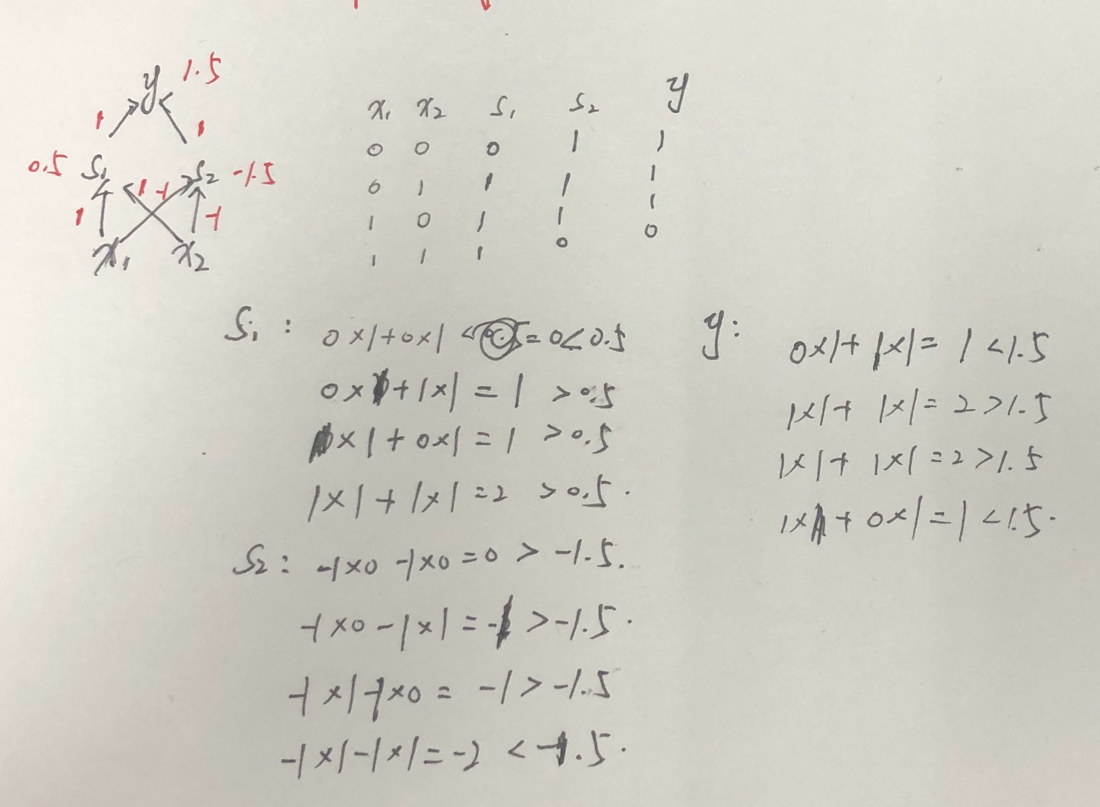 y 1.5
1 1
0.5 S₁ S₂ -1.5
1 1 -1 -1
x₁ x₂
x₁ x₂ S₁ S₂ y
0 0 0 1 1
0 1 1 1 1
1 0 1 1 1
1 1 1 0 0
S₁: 0×1+0×1 = 0<0.5
0×1+1×1 = 1 >0.5
1×1+0×1=1 >0.5
1×1+1×1=2 >0.5.
S₂: -1×0-1×0=0 > -1.5.
-1×0-1×1=-1 >-1.5.
-1×1-1×0= -1>-1.5
-1×1-1×1=-2 < -1.5.
y: 0×1+1×1=1<1.5
1×1+1×1=2>1.5
1×1+1×1=2>1.5
1×1+0×1=1<1.5.